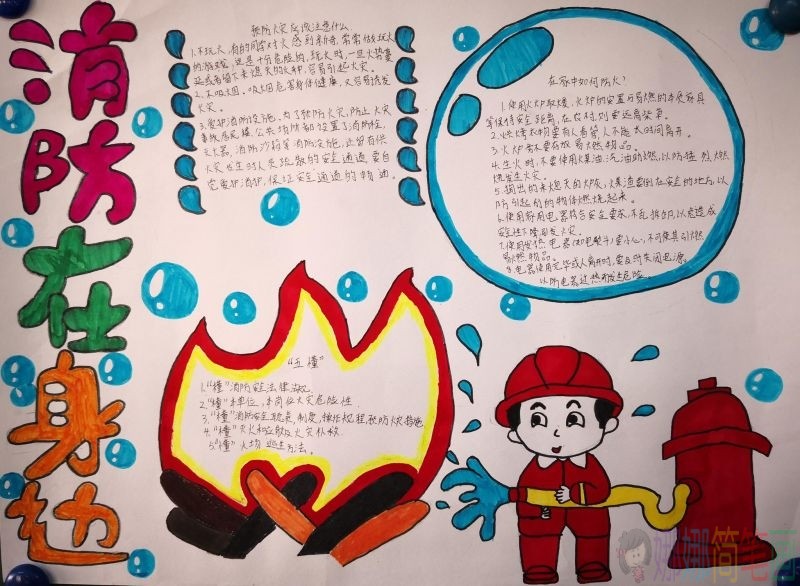 消防在身边
预防火灾应该注意什么
1.不玩火,有的同学对火感到新奇,常常做玩火
的游戏,这是十分危险的,玩火时,一旦火势蔓
延或者留下未熄灭的火种,容易引起火灾。
2.不吸烟。吸烟危害身体健康,又容易诱发
火灾。
3.爱护消防设施。为了预防火灾,防止火灾
事故
公共场所都设置了消防栓,
灭火器,消防沙箱等消防设施,还留有供
火灾发生时人员疏散的安全通道,要自
觉爱护消护,保证安全通道的畅通。
在家中如何防火?
1.使用火炉取暖,火炉的安置与易燃的木质家具
等保持安全距离,在农村,则要远离柴草。
2.烘烤衣物要有人看管,人不能长时间离开。
3.火炉旁不要存放易燃物品。
4.生火时,不要使用煤油、汽油助燃,以防猛烈燃
烧发生火灾。
5.掏出的未熄灭的炉灰,煤渣要倒在安全的地方,以
防引起别的物体燃烧起来。
6.使用家用电器符合安全要求,不乱拆卸,以免造成
安全性下降引发火灾。
7.使用发热电器(如电熨斗)要小心,不可使其引燃
易燃物品。
8.电器使用完毕或人离开时,要及时关闭电源,
以防电器过热而发生危险。
“五懂”
1.“懂”消防安全法律法规
2.“懂”本单位,本岗位火灾危险性.
3.“懂”消防安全职责,制度,操作规程,预防火灾措施
4.“懂”灭火和应急及火灾扑救.
5.“懂”火场逃生方法。
娜娜简笔画